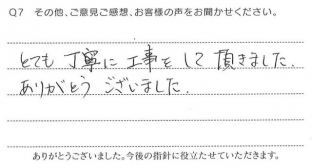 Q7 その他、ご意見ご感想、お客様の声をお聞かせください。
とても 丁寧に 工事を して 頂きました.
ありがとう ございました.
ありがとうございました。今後の指針に役立たせていただきます。